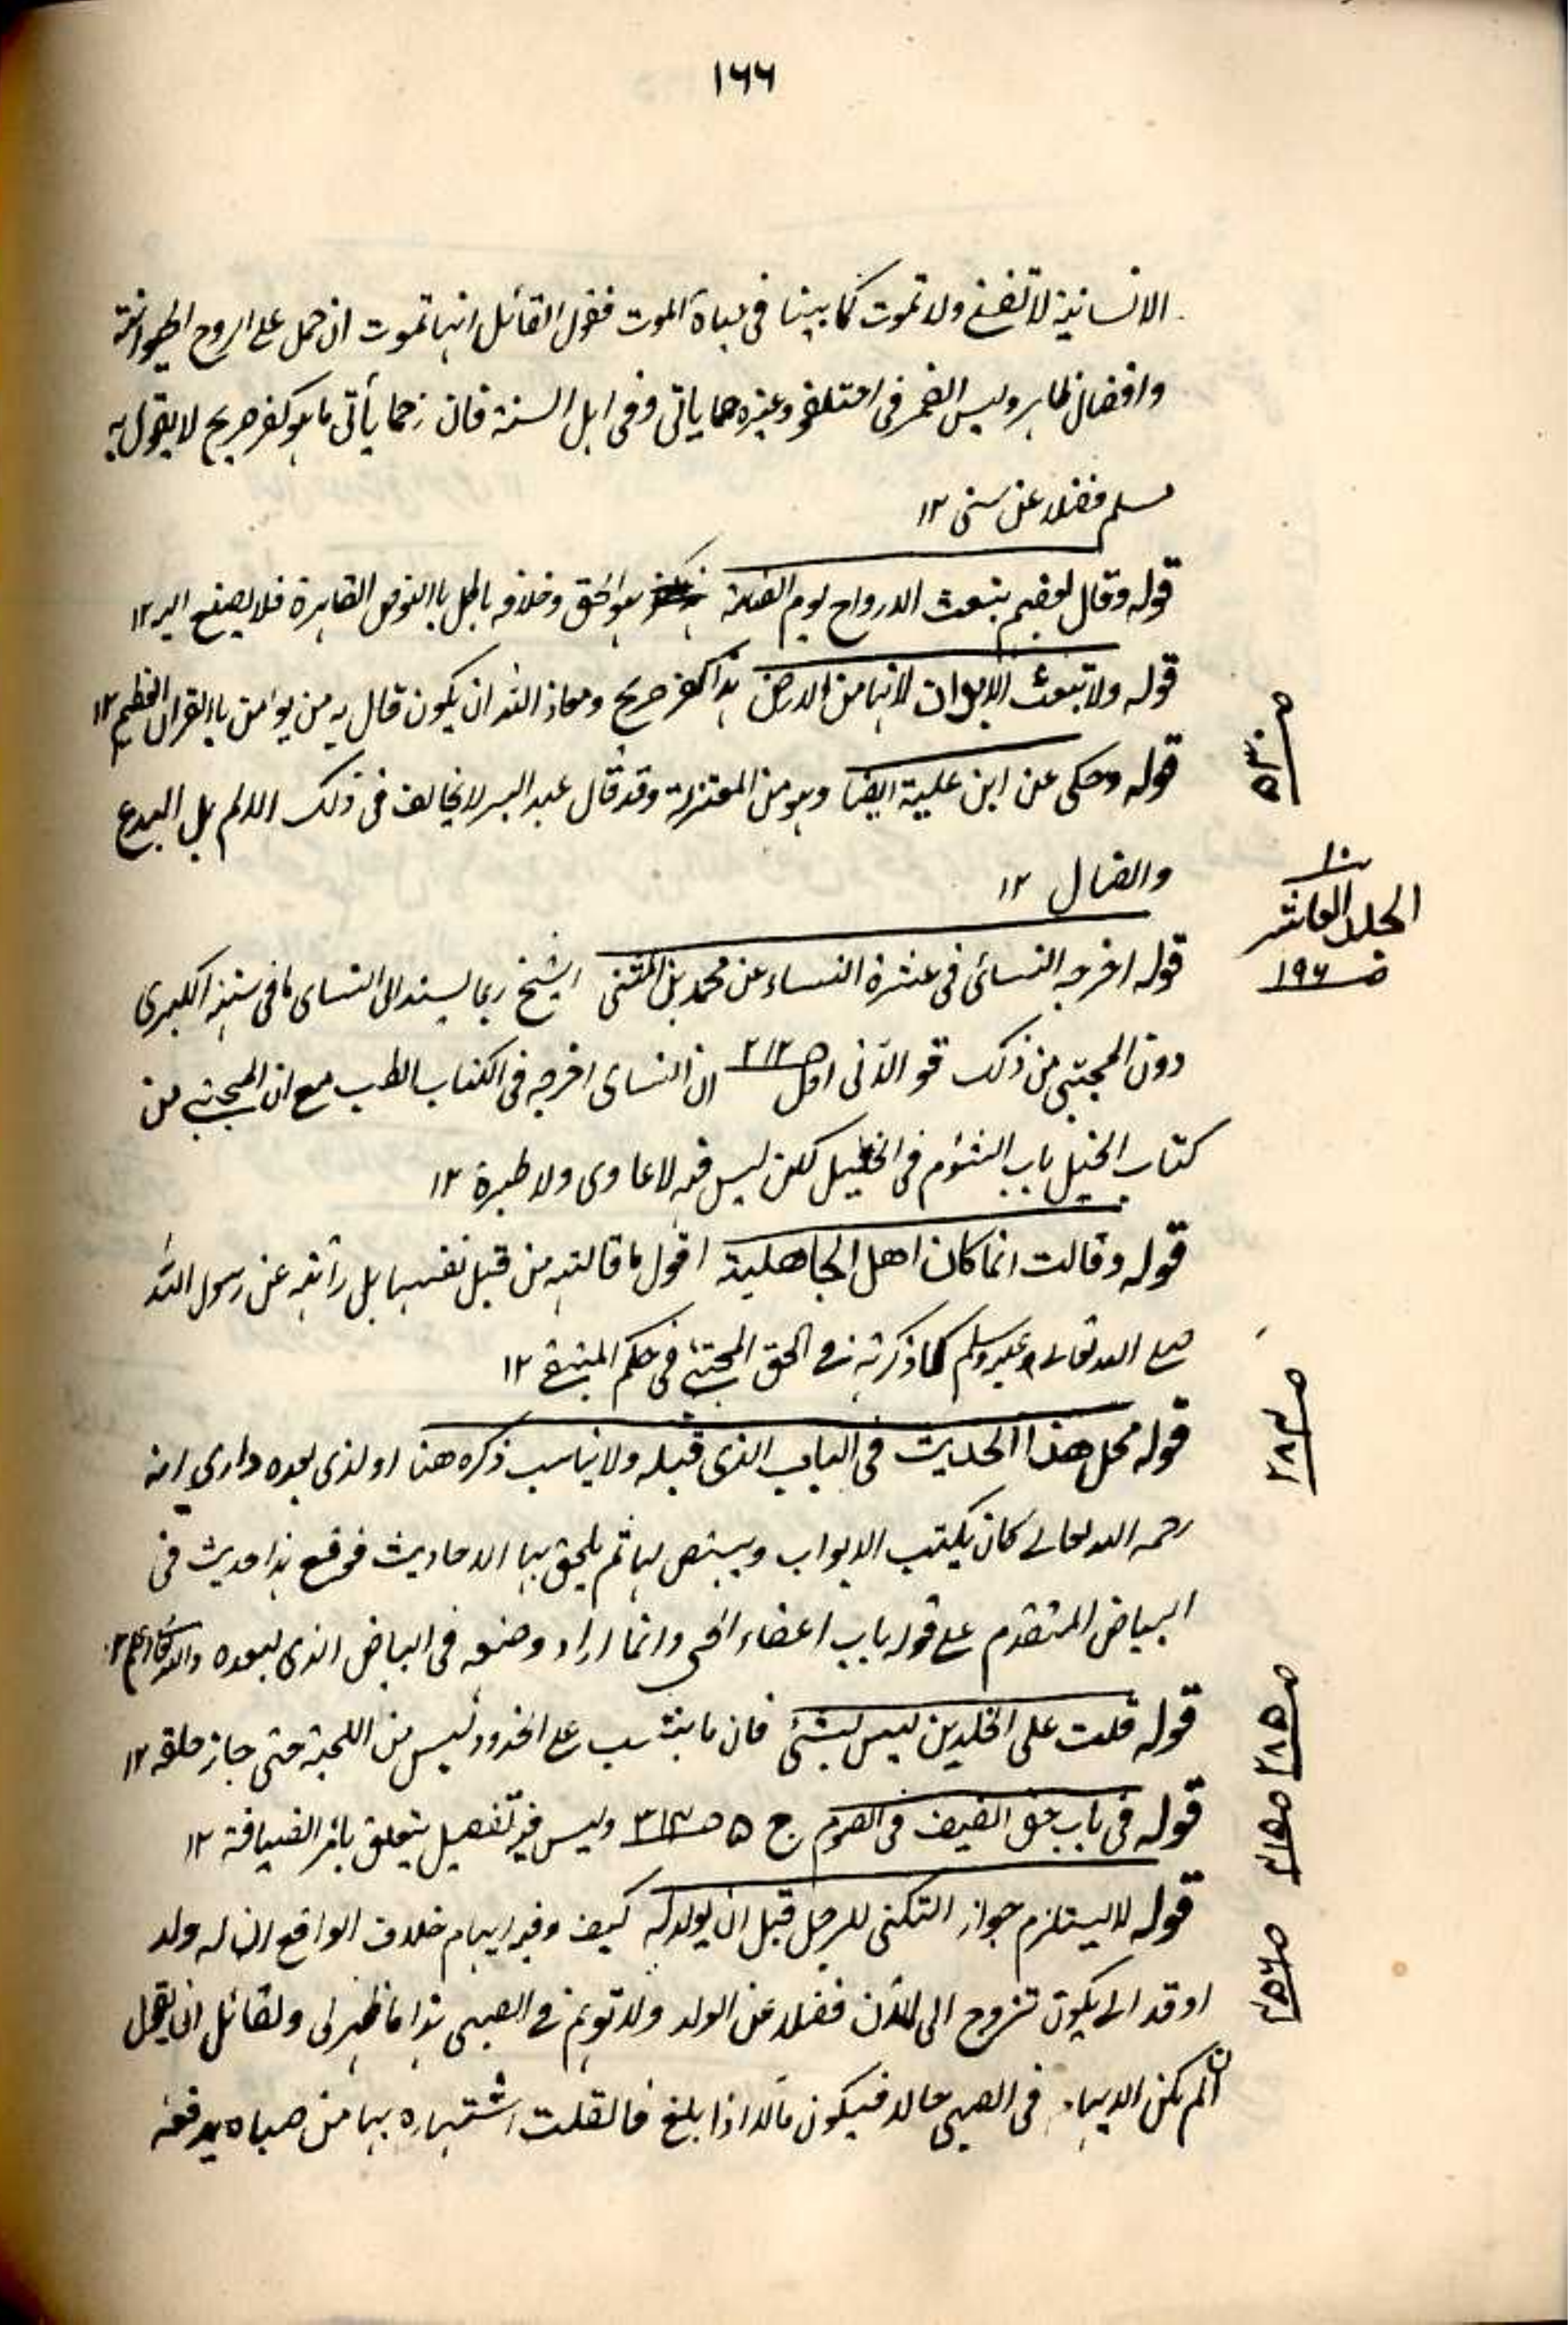 ١٦٦
الانسانية لا تفنى ولا تموت كما بينا في حياة الموت فقول القائل انها تموت ان حمل على الروح الحيوانية
وليس الضمر في اختلفو وغيره مما ياتى وفى اهل السنة فان زحما يأتى ما هو كفر صريح لا يقول به
مسلم فضلا عن سنى ١٢
قوله وقال بعضهم تبعث الارواح يوم القيمة هو الحق وخلافه باطل باالنوص القاهرة فلا يصغ اليه ١٢
قوله ولا تبعث الابدان لانها من الارض هذا كفر صريح ومعاذ الله ان يكون قال به من يوامن باالقرآن العظيم ١٢
صـ ٥٣٠
قوله وحكى عن ابن علية ايضا وهو من المعتزلة وقد قال عبد البر لا يخالف فى ذلك الا اهل البدع
والضال ١٢
١٠
الجلد العاشر
صـ ١٩٦
قوله اخرجه النسائى فى عشرة النساء عن محمد بن المثنى الشيخ ربما يسند الى النساى ما فى سننه الكبرى
دون المجتبى من ذلك قو الآتى اول صـ ٢١٢ ان النساى اخرجه فى الكتاب الطب مع ان المجتبى من
كتاب الخيل باب الشؤم فى الخيل لكن ليس فيه لاعاوى ولا طيرة ١٢
قوله وقالت انما كان اهل الجاهلية اقول ما قالته من قبل نفسها بل رأته عن رسول الله
صلى الله تعالى عليه وسلم كما ذكرته فى الحق المجتبى فى حكم المبتلى ١٢
صـ ٢٨٢
قوله محل هذا الحديث فى الباب الذى قبله ولا يناسب ذكره هنا اولذى بعده دارى انه
رحمه الله تعالى كان يكتب الابواب ويبيض لها ثم يلحق بها الاحاديث فوقع هذا حديث فى
البياض المتقدم على قوله باب اعفاء الحى وانما اراد وضعه فى البياض الذى بعده والله تعالى اعلم ١٢
صـ ٢٨٥
قوله قلت على الخلدين ليس بشئ فان ما ينتسب على الخدود ليس من اللحية حتى جاز حلقه ١٢
قوله فى باب حق الضيف فى الصوم ج ٥ صـ ٣١٣ وليس فيه تفصيل يتعلق بامر الضيافة ١٢
قوله لا يستلزم جواز التكنى للرجل قبل ان يولد له كيف وفيه ايهام خلاف الواقع ان له ولد
او قد الى يكون تزوج الى الآن فضلا عن الولد ولا توهم فى الصبى هذا ما ظهر لى ولقائل ان يقول
ان لم يكن الايهام فى الصبى حالا فيكون مآلا اذا بلغ فالقلت اشتهاره بها من صباه يدفعه